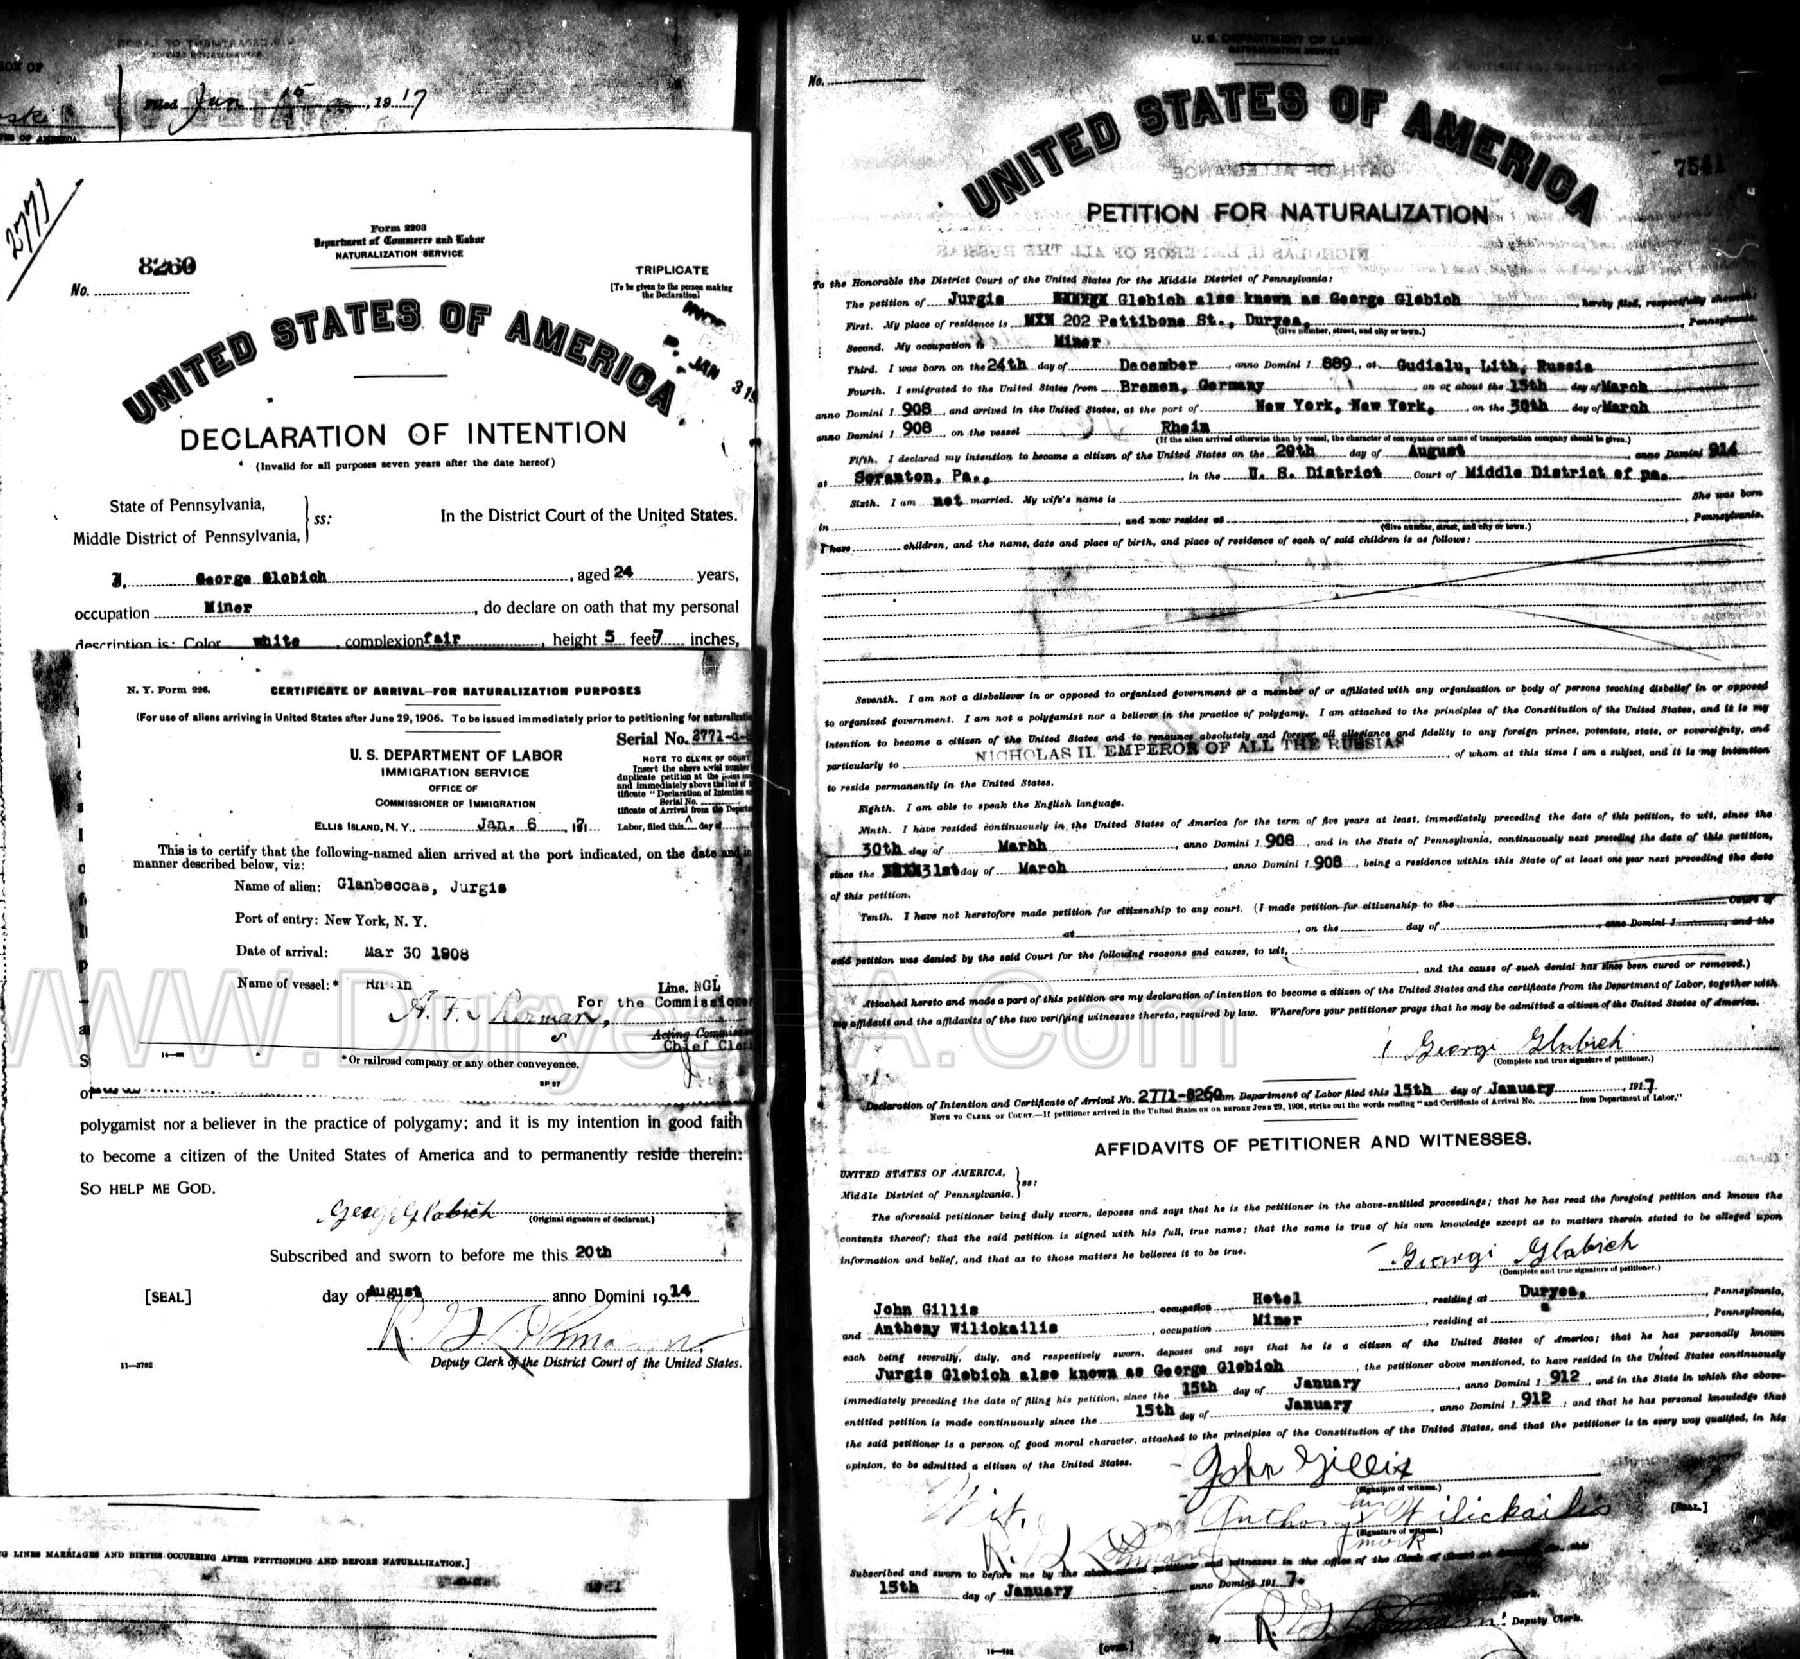 Filed Jan 15, 1917
2771
Form 2203
Department of Commerce and Labor
NATURALIZATION SERVICE
No. 8260
TRIPLICATE
[To be given to the person making
the Declaration]
UNITED STATES OF AMERICA
DECLARATION OF INTENTION
(Invalid for all purposes seven years after the date hereof)
State of Pennsylvania,
Middle District of Pennsylvania, ss:
In the District Court of the United States.
I, George Glabich, aged 24 years,
occupation Miner, do declare on oath that my personal
description is: Color white, complexion fair, height 5 feet 7 inches,
N. Y. Form 226.
CERTIFICATE OF ARRIVAL—FOR NATURALIZATION PURPOSES
(For use of aliens arriving in United States after June 29, 1906. To be issued immediately prior to petitioning for naturalization
Serial No. 2771-
U. S. DEPARTMENT OF LABOR
IMMIGRATION SERVICE
OFFICE OF
COMMISSIONER OF IMMIGRATION
ELLIS ISLAND, N. Y., Jan. 6 17
NOTE TO CLERK OF COURT
Insert the above serial number
duplicate petition at the
and immediately above the line of
tificate "Declaration of Intention
Serial No.
tificate of Arrival from the Depart
Labor, filed this day of
This is to certify that the following-named alien arrived at the port indicated, on the date and in
manner described below, viz:
Name of alien: Glanbeccas, Jurgis
Port of entry: New York, N. Y.
Date of arrival: Mar 30 1908
Name of vessel:* Rhein Line. NGL
For the Commissioner
Acting Commiss
Chief Clerk
*Or railroad company or any other conveyance.
polygamist nor a believer in the practice of polygamy; and it is my intention in good faith
to become a citizen of the United States of America and to permanently reside therein:
SO HELP ME GOD.
George Glabich
(Original signature of declarant.)
Subscribed and sworn to before me this 20th
[SEAL] day of August anno Domini 1914
Deputy Clerk of the District Court of the United States.
11—3702
LINES MARRIAGES AND BIRTHS OCCURRING AFTER PETITIONING AND BEFORE NATURALIZATION.]
U. S. DEPARTMENT OF LABOR
NATURALIZATION SERVICE
No.
7541
UNITED STATES OF AMERICA
PETITION FOR NATURALIZATION
To the Honorable the District Court of the United States for the Middle District of Pennsylvania:
The petition of Jurgis XXXXXX Glabich also known as George Glabich, hereby filed, respectfully sheweth:
First. My place of residence is XXX 202 Pettibone St., Duryea, Pennsylvania.
(Give number, street, and city or town.)
Second. My occupation is Miner
Third. I was born on the 24th day of December, anno Domini 1 889, at Gudialu, Lith, Russia
Fourth. I emigrated to the United States from Bremen, Germany on or about the 15th day of March
anno Domini 1 908, and arrived in the United States, at the port of New York, New York, on the 30th day of March
anno Domini 1 908, on the vessel Rhein
(If the alien arrived otherwise than by vessel, the character of conveyance or name of transportation company should be given.)
Fifth. I declared my intention to become a citizen of the United States on the 20th day of August, anno Domini 914
at Scranton, Pa., in the U. S. District Court of Middle District of pa.
Sixth. I am not married. My wife's name is She was born
in, and now resides at, Pennsylvania.
(Give number, street, and city or town.)
I have children, and the name, date and place of birth, and place of residence of each of said children is as follows:
Seventh. I am not a disbeliever in or opposed to organized government or a member of or affiliated with any organization or body of persons teaching disbelief in or opposed
to organized government. I am not a polygamist nor a believer in the practice of polygamy. I am attached to the principles of the Constitution of the United States, and it is my
intention to become a citizen of the United States and to renounce absolutely and forever all allegiance and fidelity to any foreign prince, potentate, state, or sovereignty, and
particularly to NICHOLAS II. EMPEROR OF ALL THE RUSSIAS, of whom at this time I am a subject, and it is my intention
to reside permanently in the United States.
Eighth. I am able to speak the English language.
Ninth. I have resided continuously in the United States of America for the term of five years at least, immediately preceding the date of this petition, to wit, since the
30th day of Marhh, anno Domini 1 908, and in the State of Pennsylvania, continuously next preceding the date of this petition,
since the XXXX31st day of March, anno Domini 1 908, being a residence within this State of at least one year next preceding the date
of this petition.
Tenth. I have not heretofore made petition for citizenship to any court. (I made petition for citizenship to the Court of
at, on the day of, anno Domini 1, and the
said petition was denied by the said Court for the following reasons and causes, to wit,
, and the cause of such denial has since been cured or removed.)
Attached hereto and made a part of this petition are my declaration of intention to become a citizen of the United States and the certificate from the Department of Labor, together with
my affidavit and the affidavits of the two verifying witnesses thereto, required by law. Wherefore your petitioner prays that he may be admitted a citizen of the United States of America.
Georgi Glabich
(Complete and true signature of petitioner.)
Declaration of Intention and Certificate of Arrival No. 2771-8260 from Department of Labor filed this 15th day of January, 1917
NOTE TO CLERK OF COURT.—If petitioner arrived in the United States on or before June 29, 1906, strike out the words reading "and Certificate of Arrival No. from Department of Labor."
AFFIDAVITS OF PETITIONER AND WITNESSES.
UNITED STATES OF AMERICA,
Middle District of Pennsylvania. ss:
The aforesaid petitioner being duly sworn, deposes and says that he is the petitioner in the above-entitled proceedings; that he has read the foregoing petition and knows the
contents thereof; that the said petition is signed with his full, true name; that the same is true of his own knowledge except as to matters therein stated to be alleged upon
information and belief, and that as to those matters he believes it to be true.
Georgi Glabich
(Complete and true signature of petitioner.)
John Gillis, occupation Hotel, residing at Duryea, Pennsylvania,
and Anthony Wilickailis, occupation Miner, residing at, Pennsylvania,
each being severally, duly, and respectively sworn, deposes and says that he is a citizen of the United States of America; that he has personally known
Jurgis Glabich also known as George Glabich, the petitioner above mentioned, to have resided in the United States continuously
immediately preceding the date of filing his petition, since the 15th day of January, anno Domini 1 912, and in the State in which the above-
entitled petition is made continuously since the 15th day of January, anno Domini 1 912; and that he has personal knowledge that
the said petitioner is a person of good moral character, attached to the principles of the Constitution of the United States, and that the petitioner is in every way qualified, in his
opinion, to be admitted a citizen of the United States.
John Gillis
(Signature of witness.)
Wit.
Anthony Wilickailis
his
mark
(Signature of witness.)
[SEAL.]
Subscribed and sworn to before me by the above-named petitioner and witnesses in the office of the Clerk of said Court at
15th day of January anno Domini 1917.
Clerk.
By Deputy Clerk.
[OVER.]
www.DuryeaPA.Com